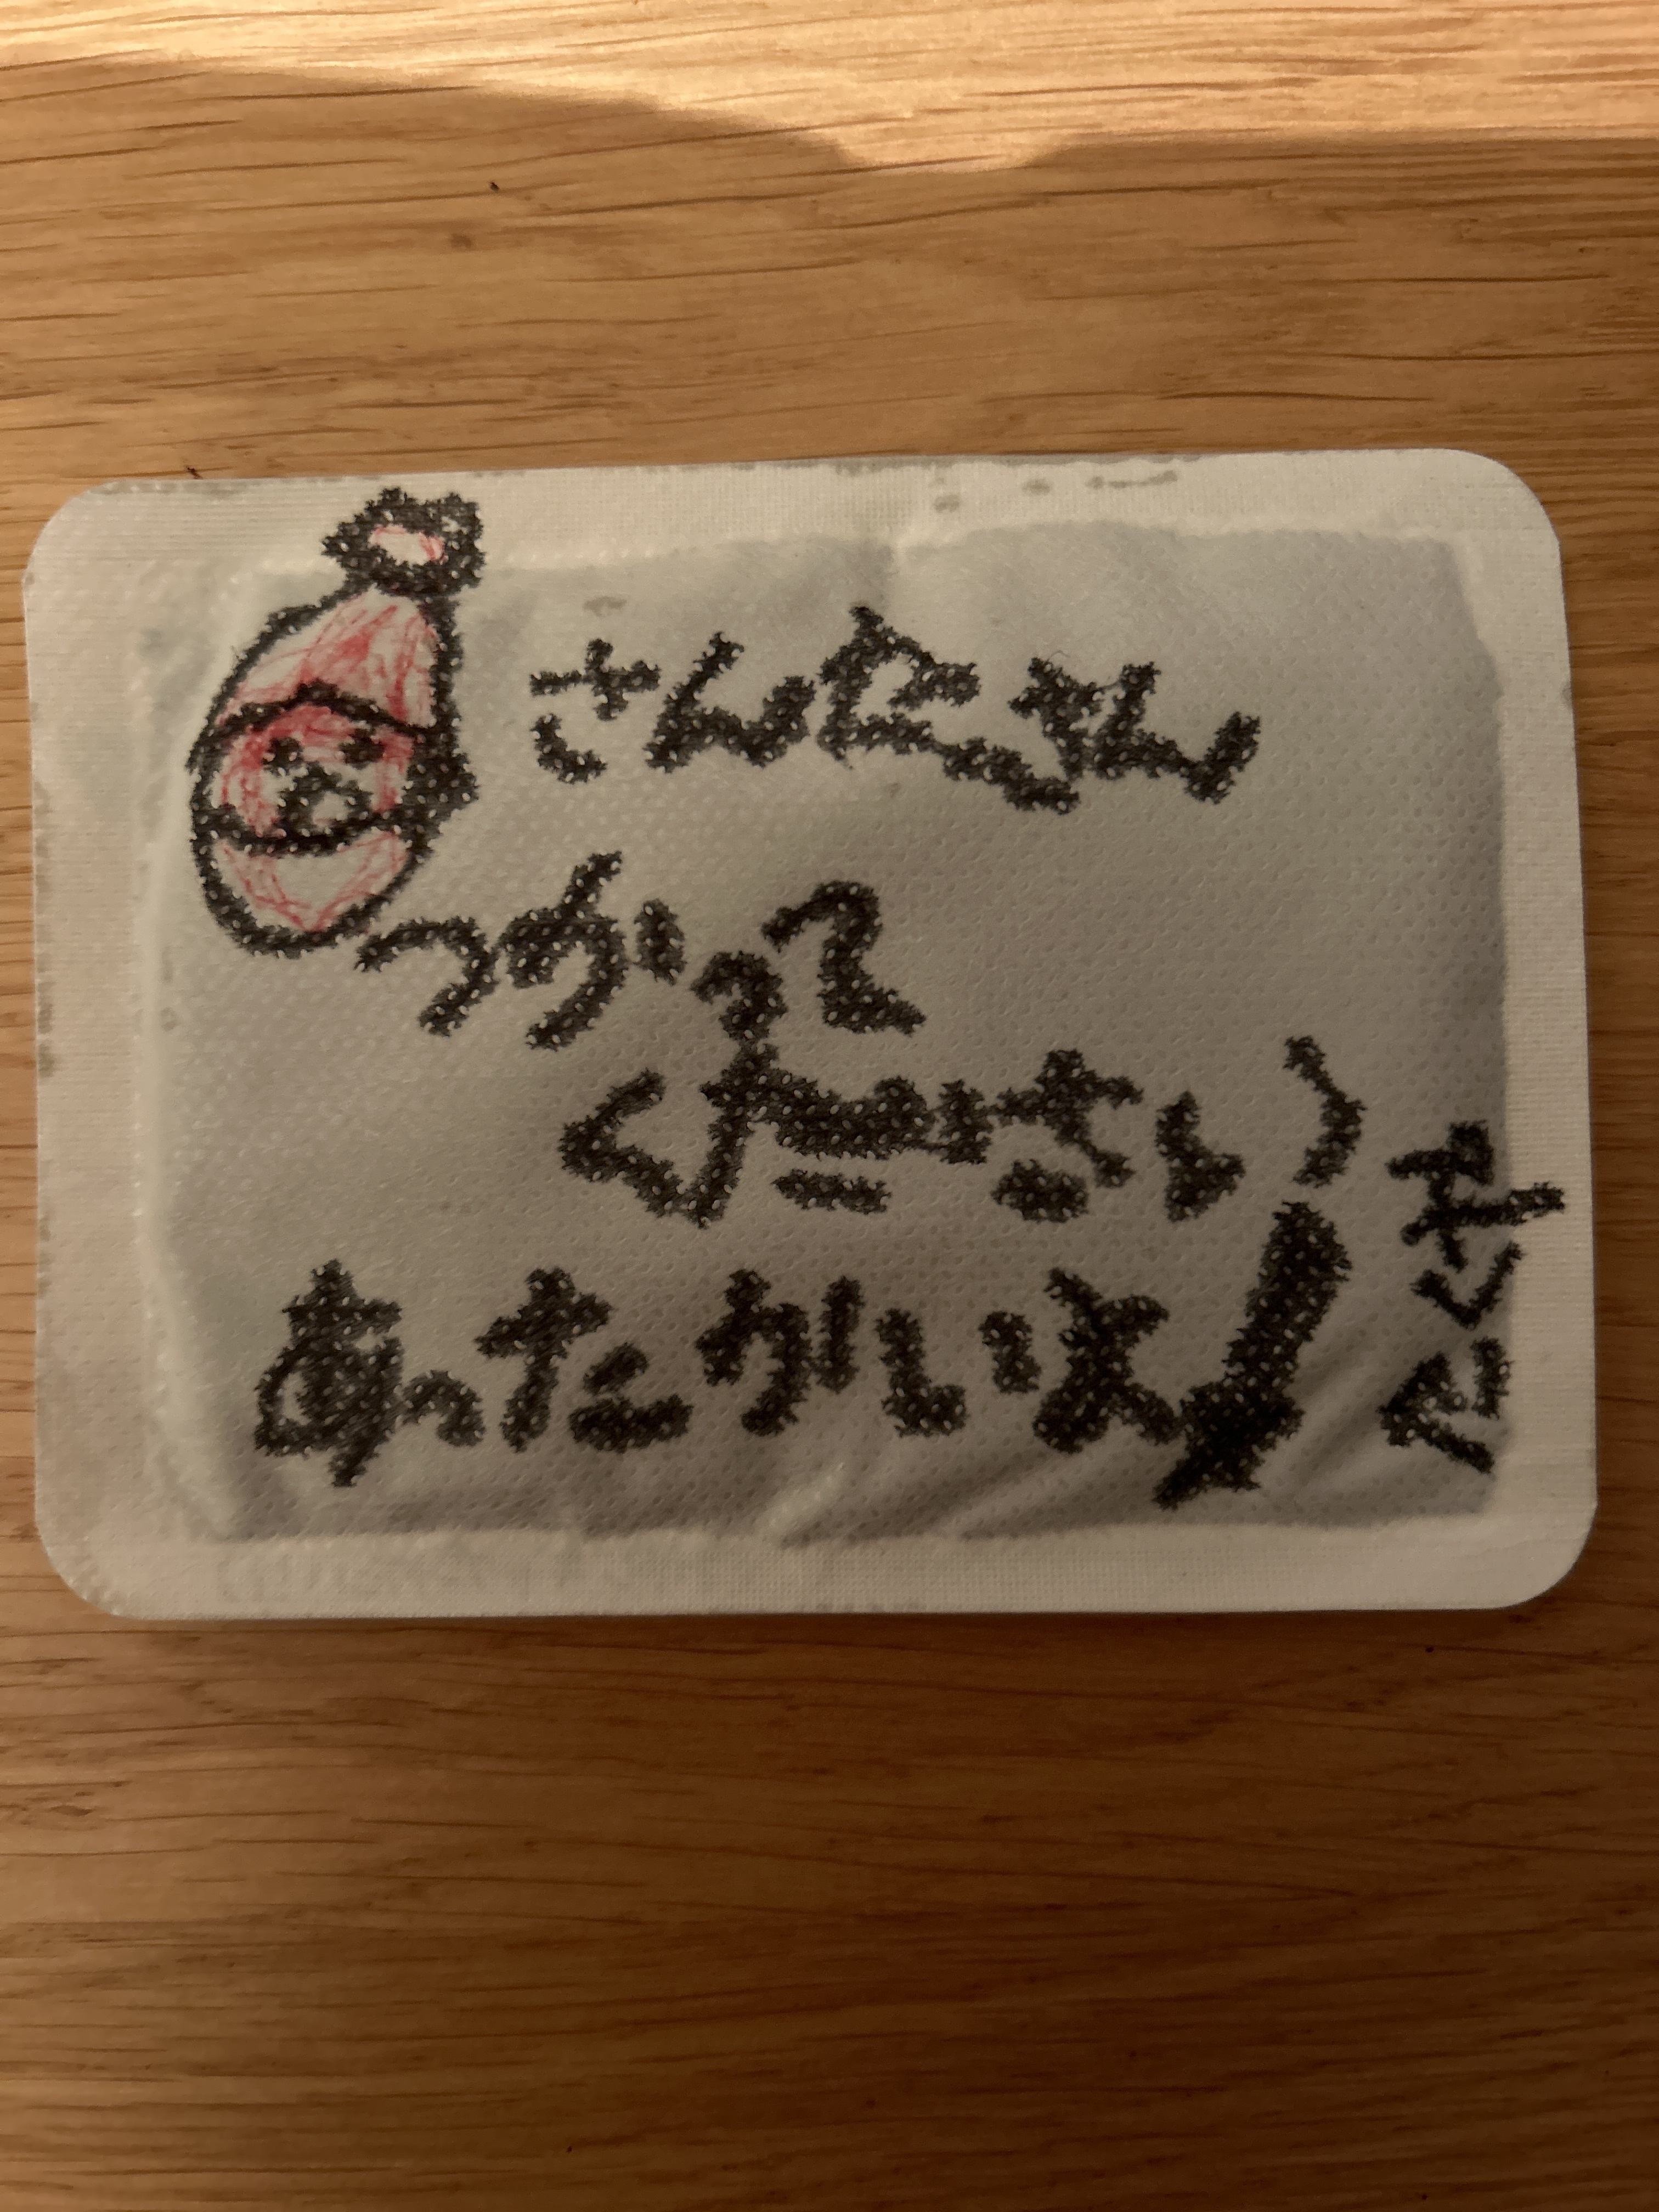 さんたさん
つかって
ください
あったかいよ
たくや